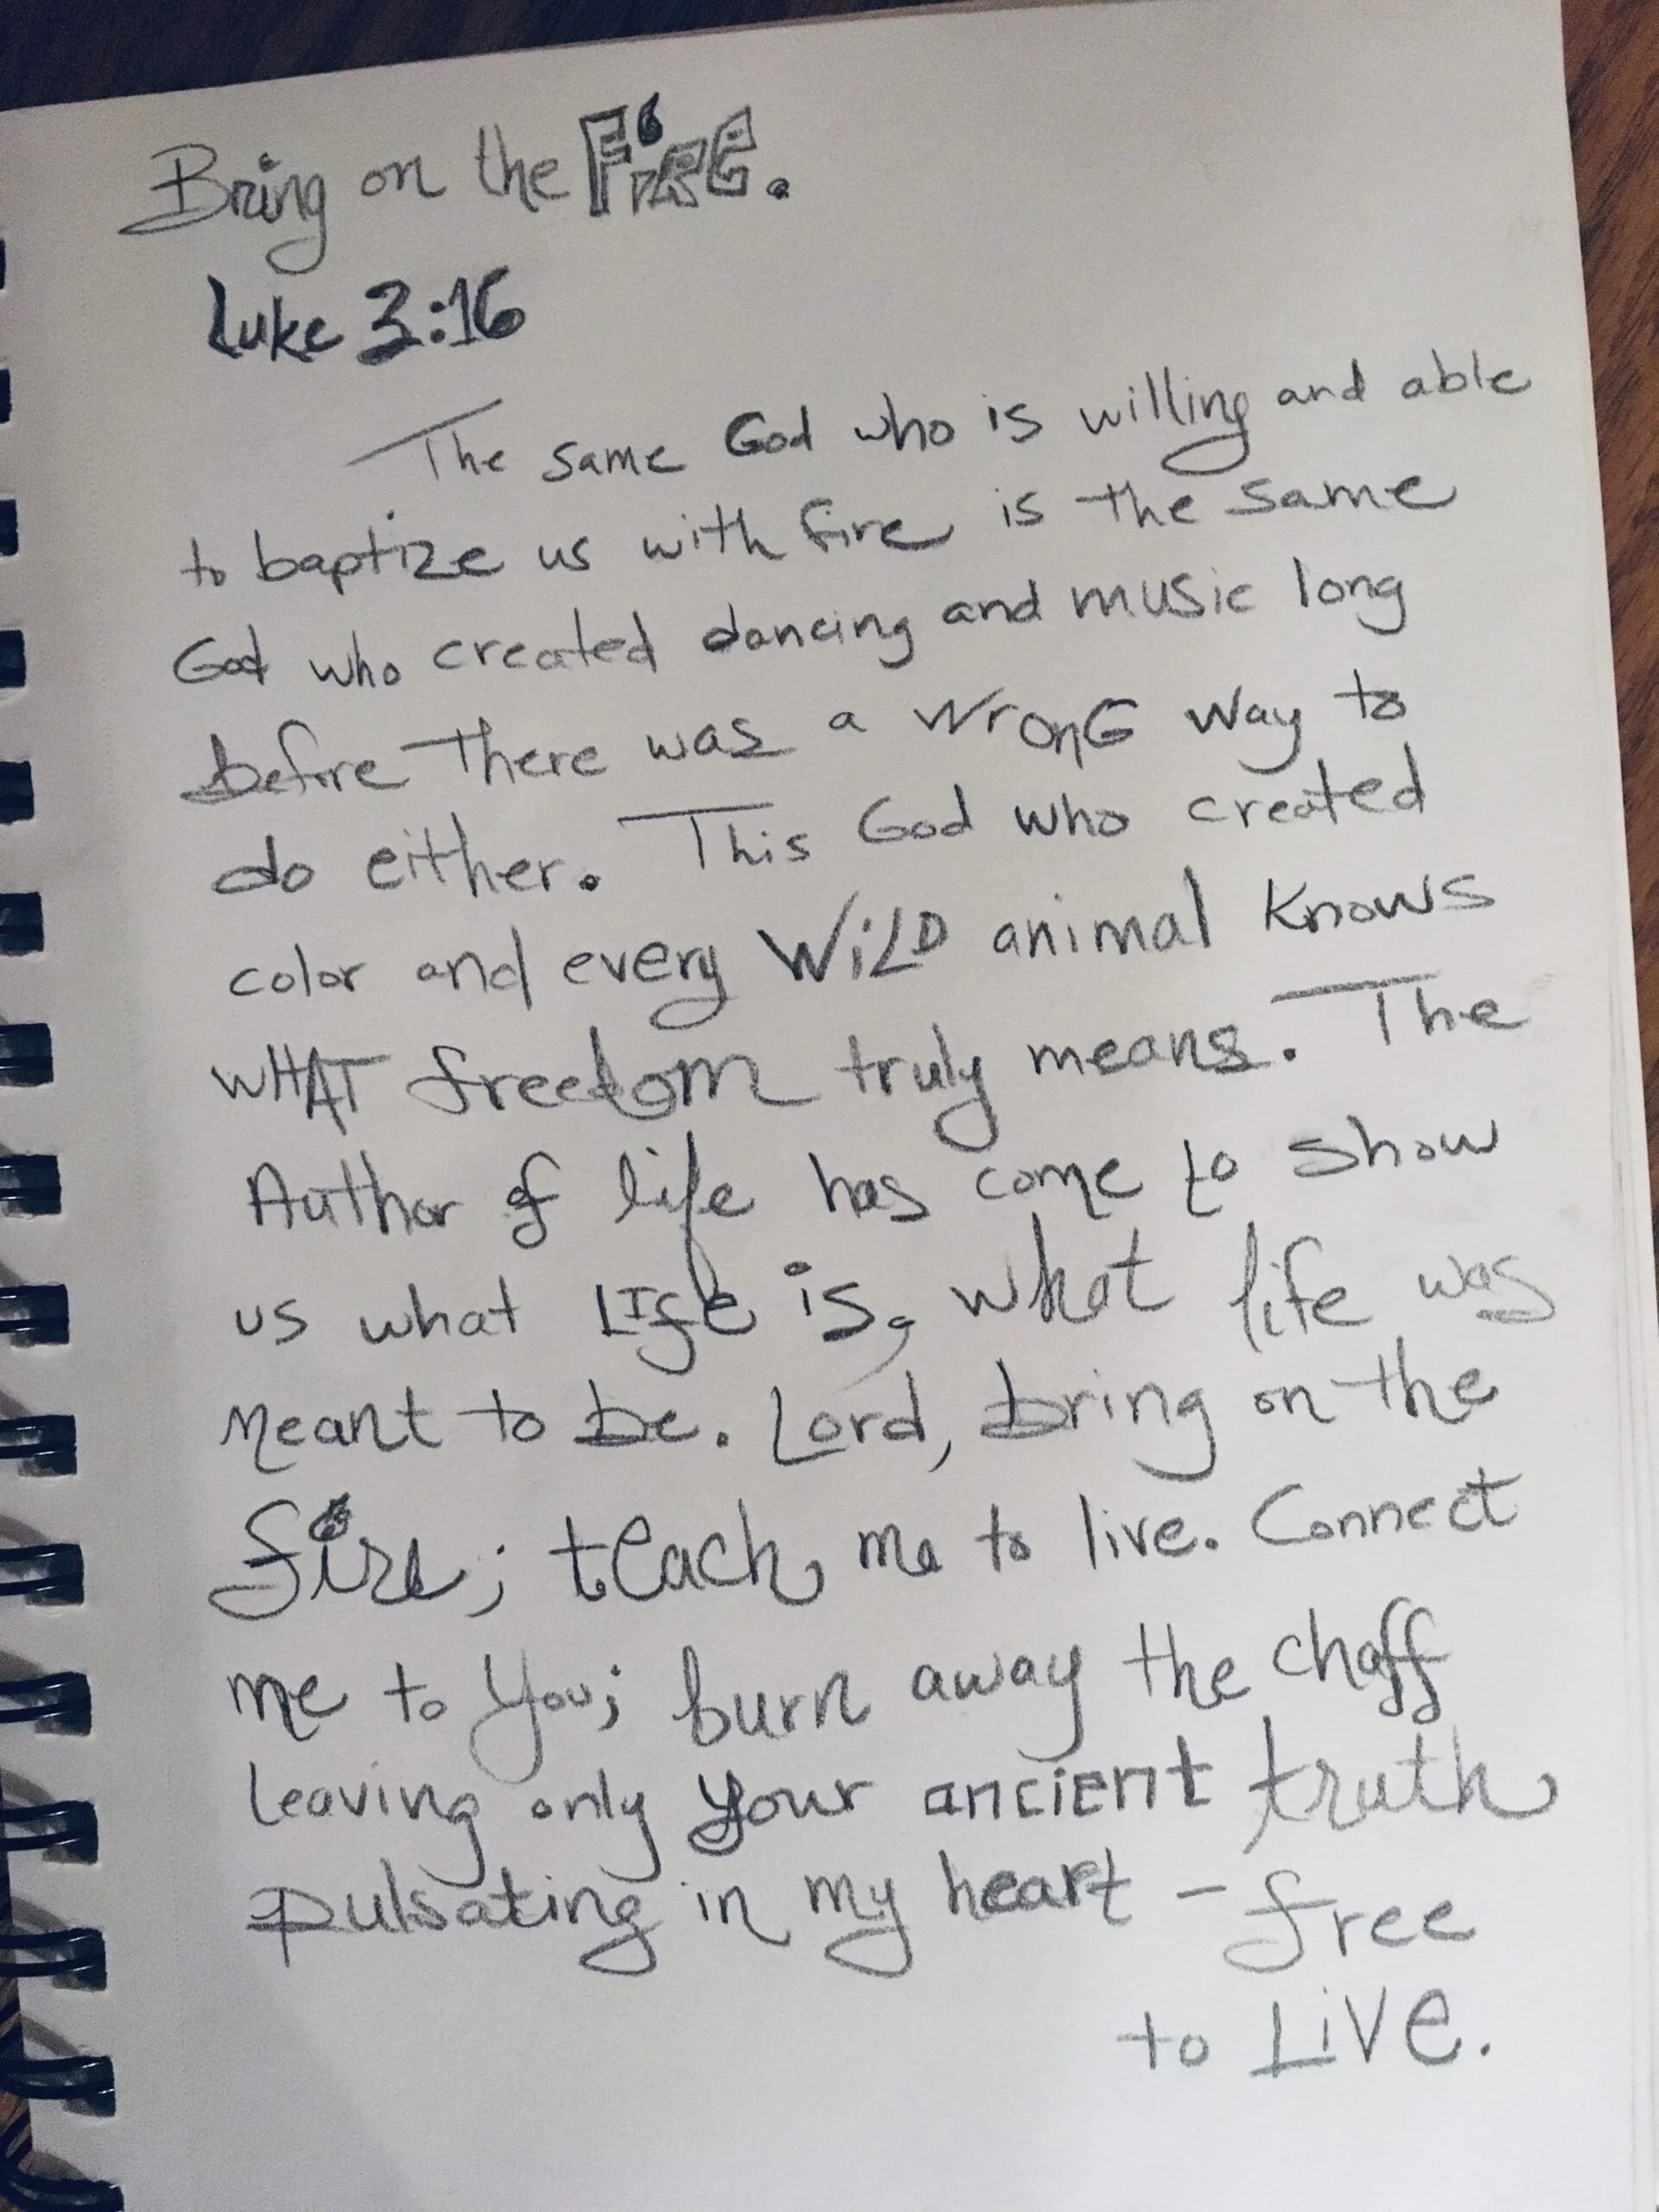 Bring on the FiRE.
Luke 3:16
The same God who is willing and able
to baptize us with fire is the same
God who created dancing and music long
before there was a wronG way to
do either. This God who created
color and every WiLD animal knows
wHAT freedom truly means. The
Author of life has come to show
us what LIfe is, what life was
meant to be. Lord, bring on the
fire; teach me to live. Connect
me to You; burn away the chaff
leaving only your ancient truth
pulsating in my heart - free
to LiVe.